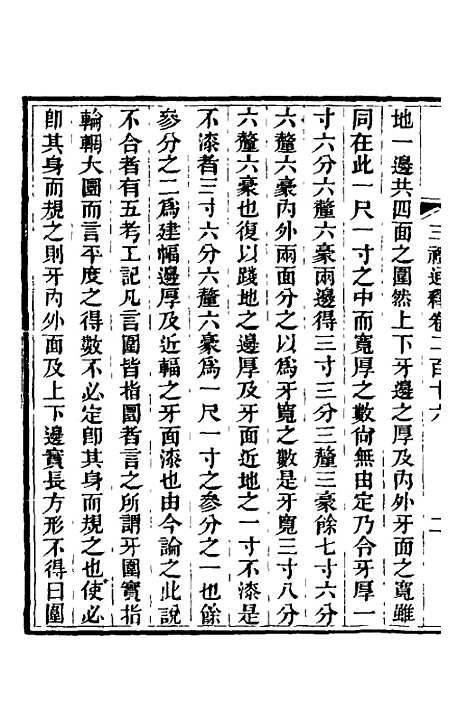 三禮通釋卷二百十六　二
地一邊共四面之圍然上下牙邊之厚及內外牙面之寬雖
同在此一尺一寸之中而寬厚之數尙無由定乃令牙厚一
寸六分六釐六豪兩邊得三寸三分三釐三豪餘七寸六分
六釐六豪內外兩面分之以爲牙寬之數是牙寬三寸八分
六釐六豪也復以踐地之邊厚及牙面近地之一寸不漆是
不漆者三寸六分六釐六豪爲一尺一寸之參分之一也餘
參分之二爲建輻邊厚及近輻之牙面漆也由今論之此說
不合者有五考工記凡言圍皆指圜者言之所謂牙圍實指
輪輞大圜而言平度之得數不必定卽其身而規之也使必
卽其身而規之則牙內外面及上下邊實長方形不得曰圍